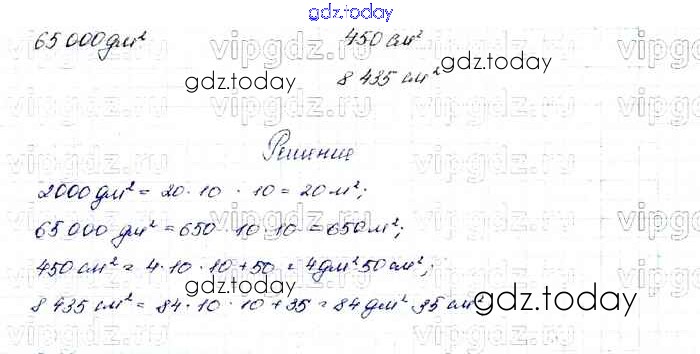 gdz.today
65 000 дм² 450 см²
gdz.today gdz.today
8 435 см²
Решение
2000 дм² = 20 · 10 · 10 = 20 м²;
65 000 дм² = 650 · 10 · 10 = 650 м²;
450 см² = 4 · 10 · 10 + 50 = 4 дм² 50 см²;
8 435 см² = 84 · 10 · 10 + 35 = 84 дм² 35 см²
gdz.today gdz.today